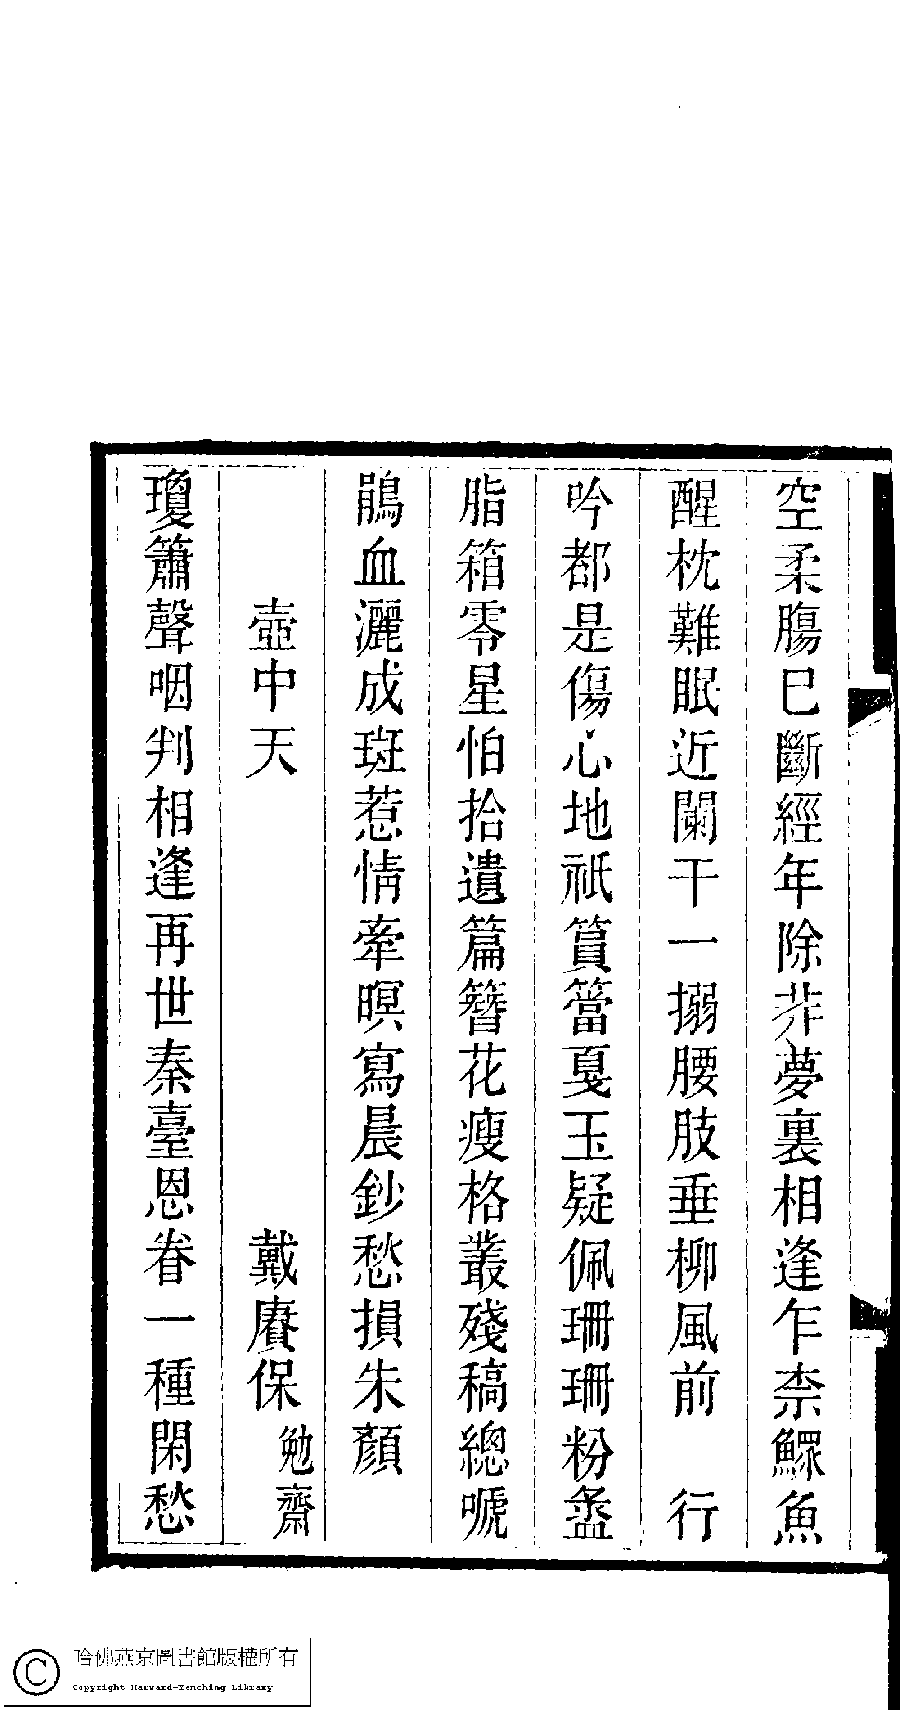 空柔腸巳斷經年除非夢裏相逢乍柰鰥魚
醒枕難眠近闌干一搦腰肢垂柳風前　行
吟都是傷心地祇篔簹戛玉疑佩珊珊粉盝
脂箱零星怕拾遺篇簪花瘦格叢殘稿總嗁
鵑血灑成斑惹情牽暝寫晨鈔愁損朱顏
壺中天　戴賡保勉齋
瓊簫聲咽判相逢再世秦臺恩眷一種閑愁
哈佛燕京圖書館版權所有
Copyright Harvard-Yenching Library